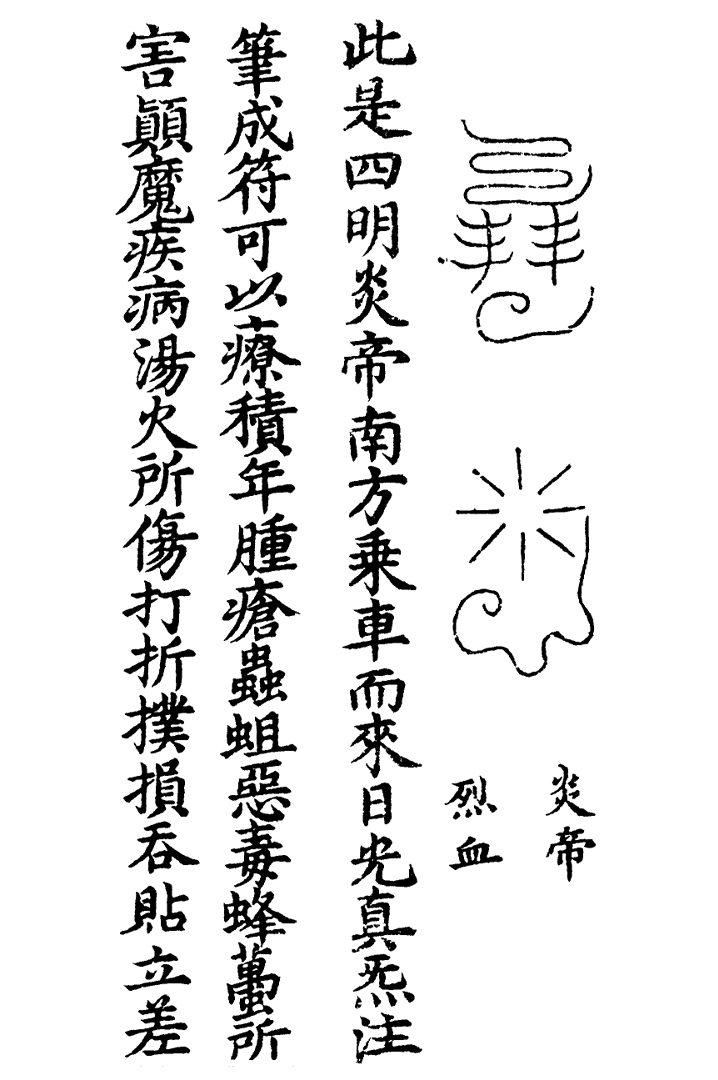 炎帝
烈血
此是四明炎帝南方乗車而來日光真炁注
筆成符可以療積年腫瘡蟲蛆惡毒蜂蠆所
害顛魔疾病湯火所傷打折撲損吞貼立差